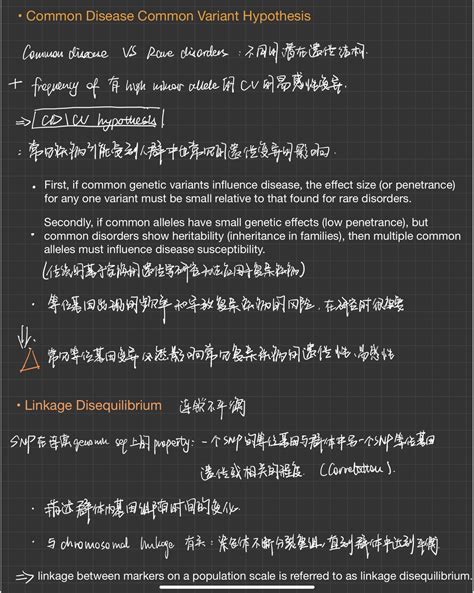 • Common Disease Common Variant Hypothesis
Common disease VS Rare disorders : 不同的潜在遗传结构.
+ frequency of 有 high minor allele 的 CV 的易感性变异.
⇒ CD/CV hypothesis
: 常见疾病可能受到人群中任常见的遗传变异的影响.
• First, if common genetic variants influence disease, the effect size (or penetrance)
for any one variant must be small relative to that found for rare disorders.
Secondly, if common alleles have small genetic effects (low penetrance), but
• common disorders show heritability (inheritance in families), then multiple common
alleles must influence disease susceptibility.
(传统的基于家族的遗传学研究 应用于复杂疾病)
• 等位基因出现的频率和导致复杂疾病的风险, 在研究时很重要
常见等位基因变异 必然影响常见复杂疾病的遗传性、易感性
• Linkage Disequilibrium 连锁不平衡
SNP在 genomic seq上的property: 一个SNP的等位基因与群体中另一个SNP等位基因
遗传或相关的程度. (Correlation).
• 描述群体内基因组随时间的变化
• 与 chromosomal linkage 有关: 染色体不断分裂重组, 直到群体中达到平衡
⇒ linkage between markers on a population scale is referred to as linkage disequilibrium.